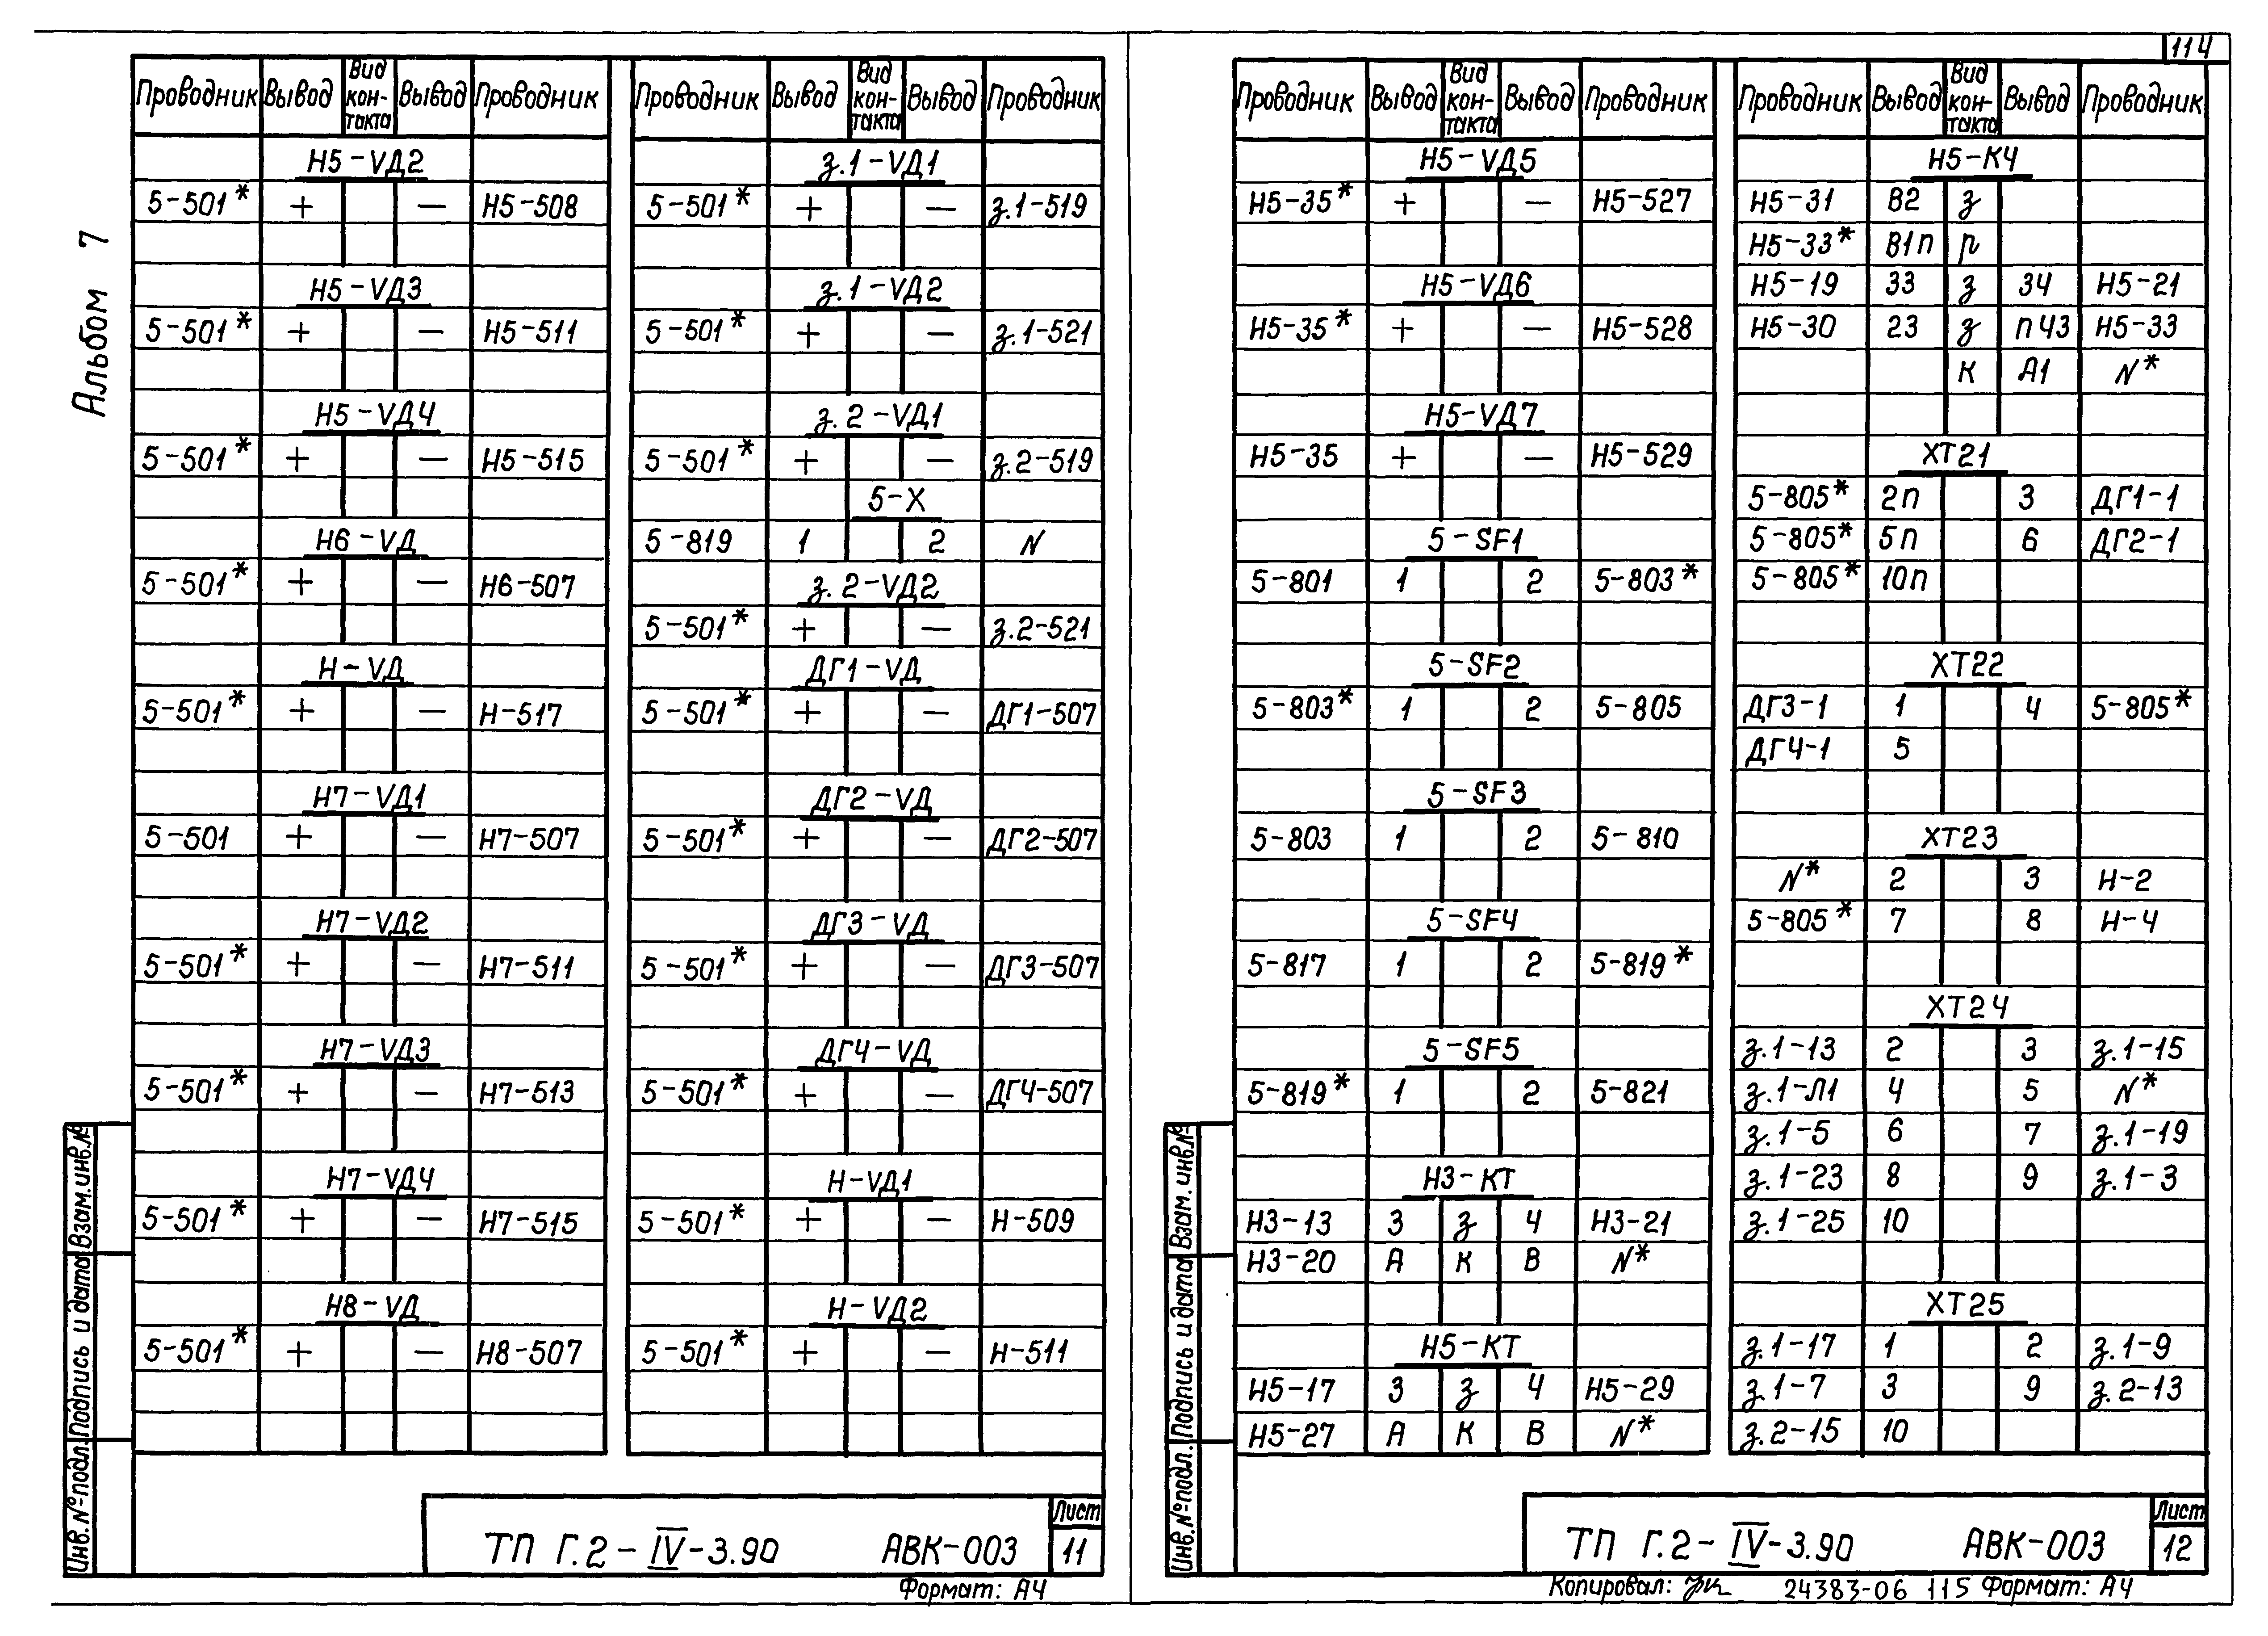 114
Альбом 7
Проводник Вывод Вид кон-такта Вывод Проводник
Н5-VД2
5-501* + — Н5-508
Н5-VД3
5-501* + — Н5-511
Н5-VД4
5-501* + — Н5-515
Н6-VД
5-501* + — Н6-507
Н-VД
5-501* + — Н-517
Н7-VД1
5-501 + — Н7-507
Н7-VД2
5-501* + — Н7-511
Н7-VД3
5-501* + — Н7-513
Н7-VД4
5-501* + — Н7-515
Н8-VД
5-501* + — Н8-507
Проводник Вывод Вид кон-такта Вывод Проводник
з.1-VД1
5-501* + — з.1-519
з.1-VД2
5-501* + — з.1-521
з.2-VД1
5-501* + — з.2-519
5-Х
5-819 1 2 N
з.2-VД2
5-501* + — з.2-521
ДГ1-VД
5-501* + — ДГ1-507
ДГ2-VД
5-501* + — ДГ2-507
ДГ3-VД
5-501* + — ДГ3-507
ДГ4-VД
5-501* + — ДГ4-507
Н-VД1
5-501* + — Н-509
Н-VД2
5-501* + — Н-511
Инв.№подл. Подпись и дата Взам.инв.№
ТП Г.2-IV-3.90 АВК-003
Лист
11
Формат: А4
Проводник Вывод Вид кон-такта Вывод Проводник
Н5-VД5
Н5-35* + — Н5-527
Н5-VД6
Н5-35* + — Н5-528
Н5-VД7
Н5-35 + — Н5-529
5-SF1
5-801 1 2 5-803*
5-SF2
5-803* 1 2 5-805
5-SF3
5-803 1 2 5-810
5-SF4
5-817 1 2 5-819*
5-SF5
5-819* 1 2 5-821
Н3-КТ
Н3-13 3 з 4 Н3-21
Н3-20 А К В N*
Н5-КТ
Н5-17 3 з 4 Н5-29
Н5-27 А К В N*
Проводник Вывод Вид кон-такта Вывод Проводник
Н5-К4
Н5-31 В2 з
Н5-33* В1п р
Н5-19 33 з 34 Н5-21
Н5-30 23 з п43 Н5-33
К А1 N*
ХТ21
5-805* 2п 3 ДГ1-1
5-805* 5п 6 ДГ2-1
5-805* 10п
ХТ22
ДГ3-1 1 4 5-805*
ДГ4-1 5
ХТ23
N* 2 3 Н-2
5-805* 7 8 Н-4
ХТ24
з.1-13 2 3 з.1-15
з.1-Л1 4 5 N*
з.1-5 6 7 з.1-19
з.1-23 8 9 з.1-3
з.1-25 10
ХТ25
з.1-17 1 2 з.1-9
з.1-7 3 9 з.2-13
з.2-15 10
Инв.№подл. Подпись и дата Взам.инв.№
ТП Г.2-IV-3.90 АВК-003
Лист
12
Копировал: 24383-06 115 Формат: А4